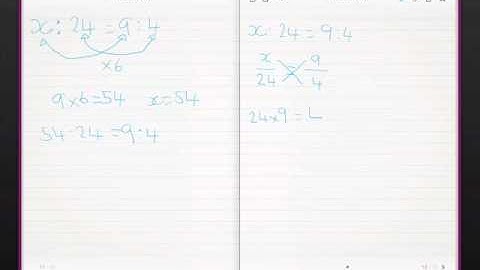 x : 24 = 9 : 4
×6
9 × 6 = 54 x = 54
54 : 24 = 9 : 4
x : 24 = 9 : 4
x/24 = 9/4
24 × 9 = L